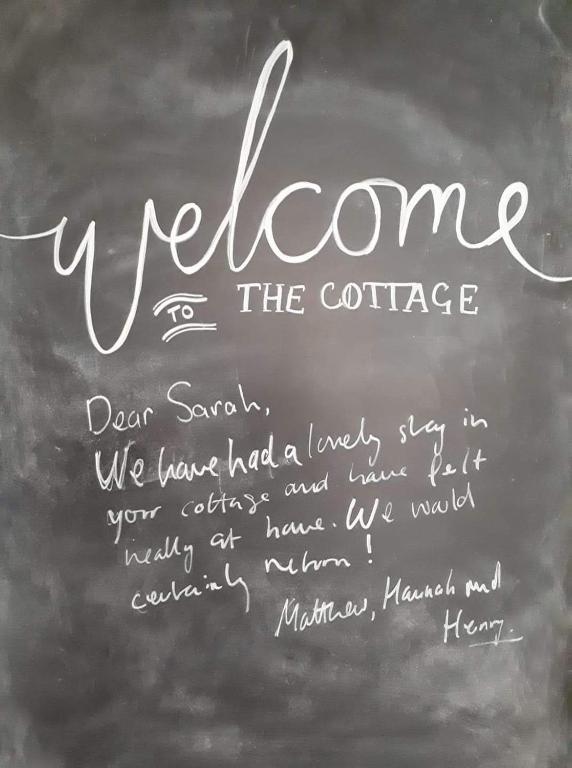 welcome
TO THE COTTAGE
Dear Sarah,
We have had a lovely stay in
your cottage and have felt
really at home. We would
certainly return!
Matthew, Hannah and
Henry.